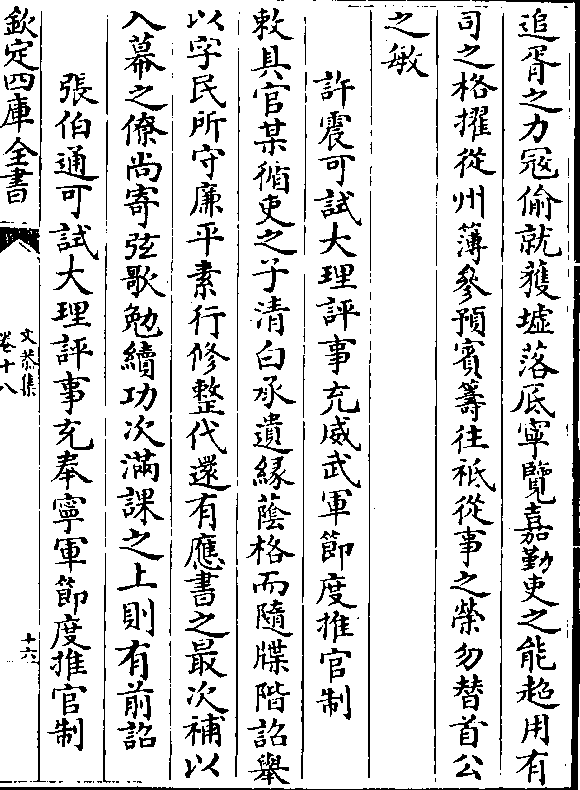 追胥之力冦偷就獲墟落厎寧覽嘉勤吏之能超用有
司之格擢從州簿參預賓籌往祗從事之榮勿替首公
之敏
許震可試大理評事充威武軍節度推官制
敕具官某循吏之子清白承遺緣蔭格而隨牒階詔舉
以字民所守廉平素行修整代還有應書之最次補以
入幕之僚尚寄弦歌勉續功次滿課之上則有前詔
張伯通可試大理評事充奉寧軍節度推官制
欽定四庫全書
文恭集
卷十八
十六